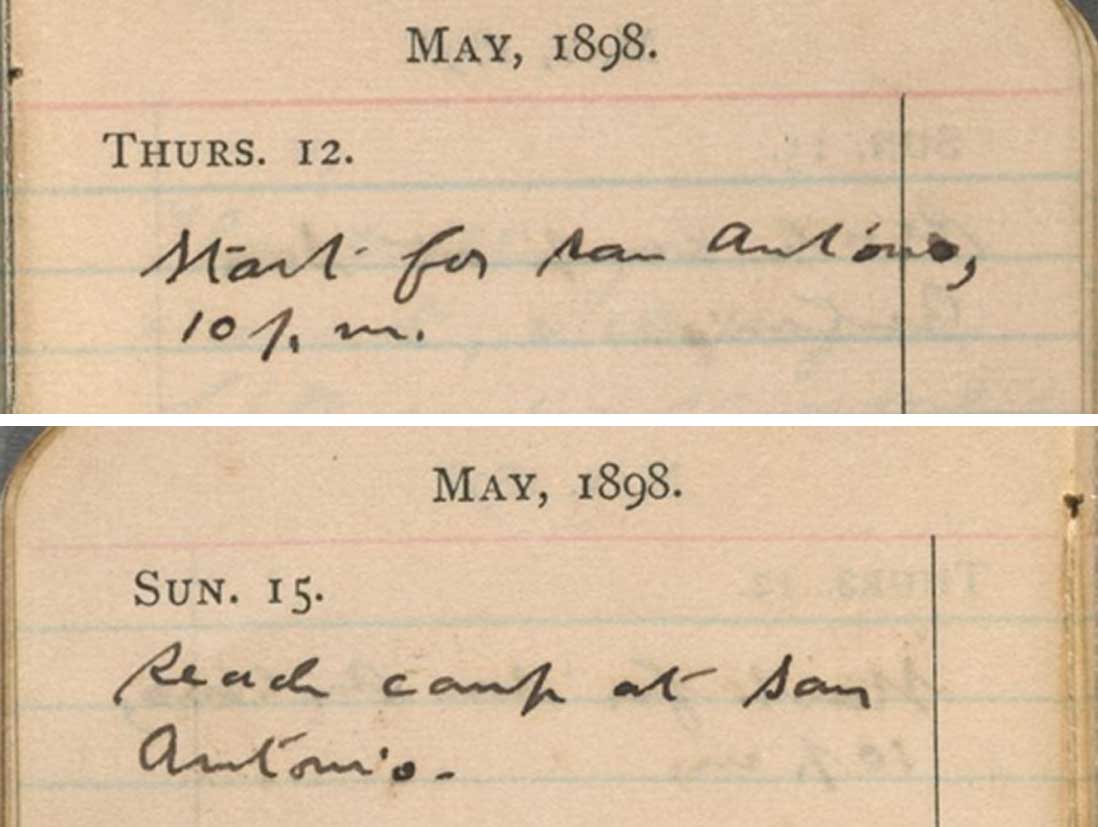 MAY, 1898.
THURS. 12.
Start for San Antonio,
10 p. m.
MAY, 1898.
SUN. 15.
Reach camp at San
Antonio.